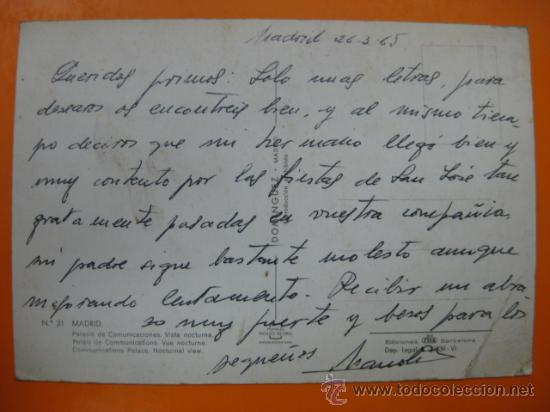 Madrid 26-3-65
Queridos primos: Solo unas letras, para
desearos os encontreis bien, y al mismo tiem-
po deciros que mi hermano llegó bien y
muy contento por las fiestas de San José tan
gratamente pasadas en vuestra compañia,
mi padre sigue bastante molesto aunque
mejorando lentamente. Recibir un abra
zo muy fuerte y besos para los
pequeños
DOMINGUEZ - MADRID
N.º 31 MADRID.
Palacio de Comunicaciones. Vista nocturna.
Palais de Communications. Vue nocturne.
Communications Palace. Nocturnal view.
Ediciones Barcelona
Dep. Legal
todocoleccion.net